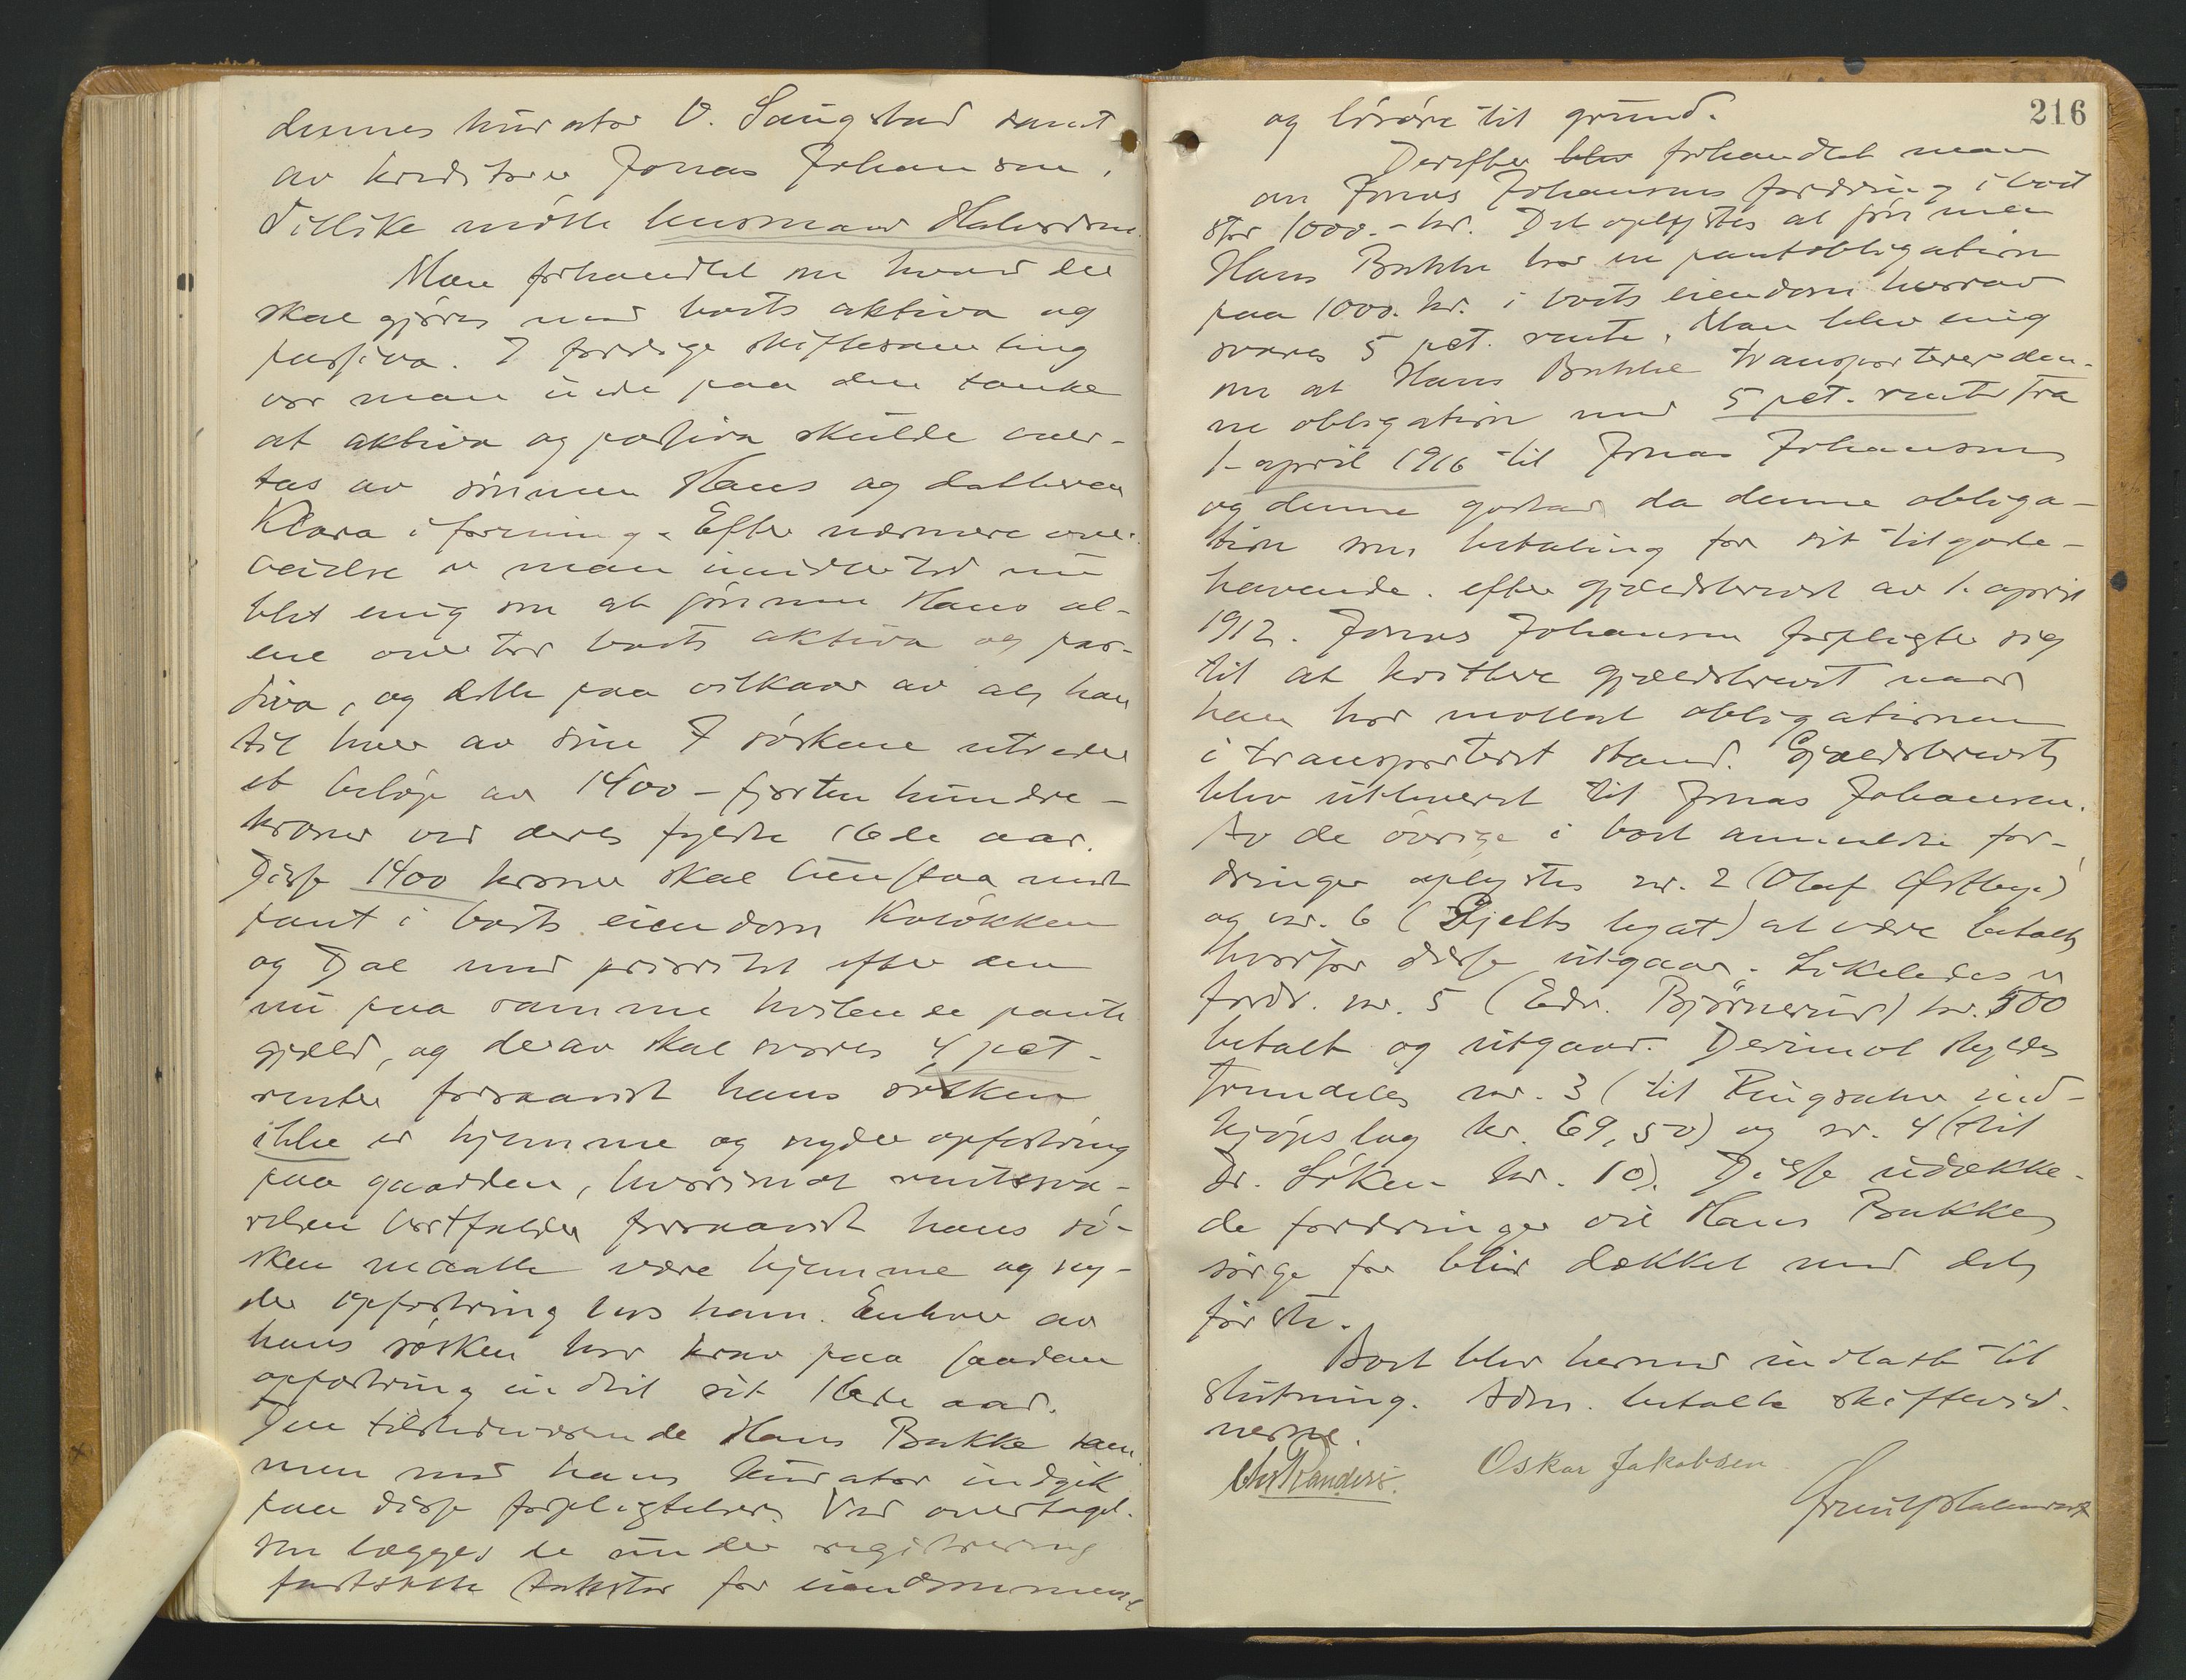 dennes kurator O. Saugstad samt
av kreditorer Jonas Johansen.
Tillike møtte lensmand Halvorsen.
Man forhandlet om hvad der
skal gjøres med boets aktiva og
passiva. I forrige skiftesamling
var man inde paa den tanke
at aktiva og passiva skulde over-
tas av sønnen Hans og datteren
Klara i forening. Efter nærmere over-
veielse er man imidlertid nu
blet enig om at sønnen Hans al-
ene overtar boets aktiva og pas-
siva, og dette paa vilkaar av at han
til hver av sine 7 søskene utreder
et beløp av 1400 - fjorten hundre -
kroner ved deres fyldte 16de aar.
Disse 1400 kroner skal henstaa mot
pant i boets eiendom Kvløkken
og Dal med prioritet efter den
nu paa samme heftende pante
gjæld, og derav skal svares 4 pct.
renter forsaavidt hans søsken
ikke er hjemme og nyder opfostring
paa gaarden, hvorimot rentesva-
relsen bortfalder forsaavidt hans sø-
sken maatte være hjemme og ny-
der opfostring hos ham. Enhver av
hans søsken har krav paa saadan
opfostring indtil sit 16de aar.
Den tilstedeværende Hans Bakke sam
men med hans kurator indgik
paa disse forpligtelser. Ved overtagel-
sen lægges de under registrering
fastsatte takster for eiendommene
216
og løsøre til grund.
Derefter blev forhandlet man
om Jonas Johansens fordring i boet
stor 1000.- kr. Det oplystes at sønnen
Hans Bakke har en pantobligation
paa 1000. kr. i boets eiendom hvorav
svares 5 pct. rente. Man blev enig
om at Hans Bakke transporterer den-
ne obligation med 5 pct. rente fra
1. april 1916 til Jonas Johansen
og denne godtar da denne obliga-
tion som betaling for sit tilgode-
havende. efter gjældsbrevet av 1. april
1912. Jonas Johansen forpligter sig
til at kvittere gjældsbrevet naar
han har mottat obligationen
i transportert stand. Gjældsbrevet
blev utleveret til Jonas Johansen.
Av de øvrige i boet anmeldte for-
dringer oplystes nr. 2 (Olaf Østbye)
og nr. 6 (Gjelts legat) at være betalt
hvorfor disse utgaar. Likeledes er
fordr. nr. 5 (Edv. Bjørnerud) kr. 500
betalt og utgaar. Derimot skyldes
fremdeles nr. 3 (til Ringsaker ind-
kjøpslag kr. 69,50) og nr. 4 (til
Dr. Løken kr. 10). Disse udække-
de fordringer vil Hans Bakke
sørge for blir dækket med det
første.
Boet blev hermed indlatt til
slutning. Adm. betalte skiftevid-
nerne.
Chr Randers. Oskar Jakobsen